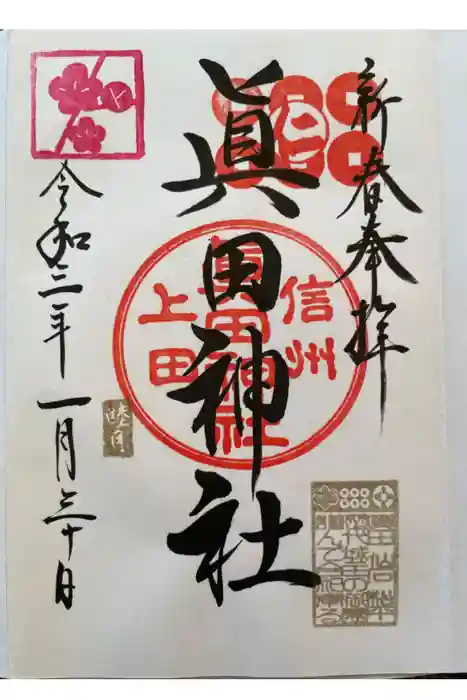 新春奉拝
眞田神社
信州
眞田神社
上田
令和三年一月三十日
睦月